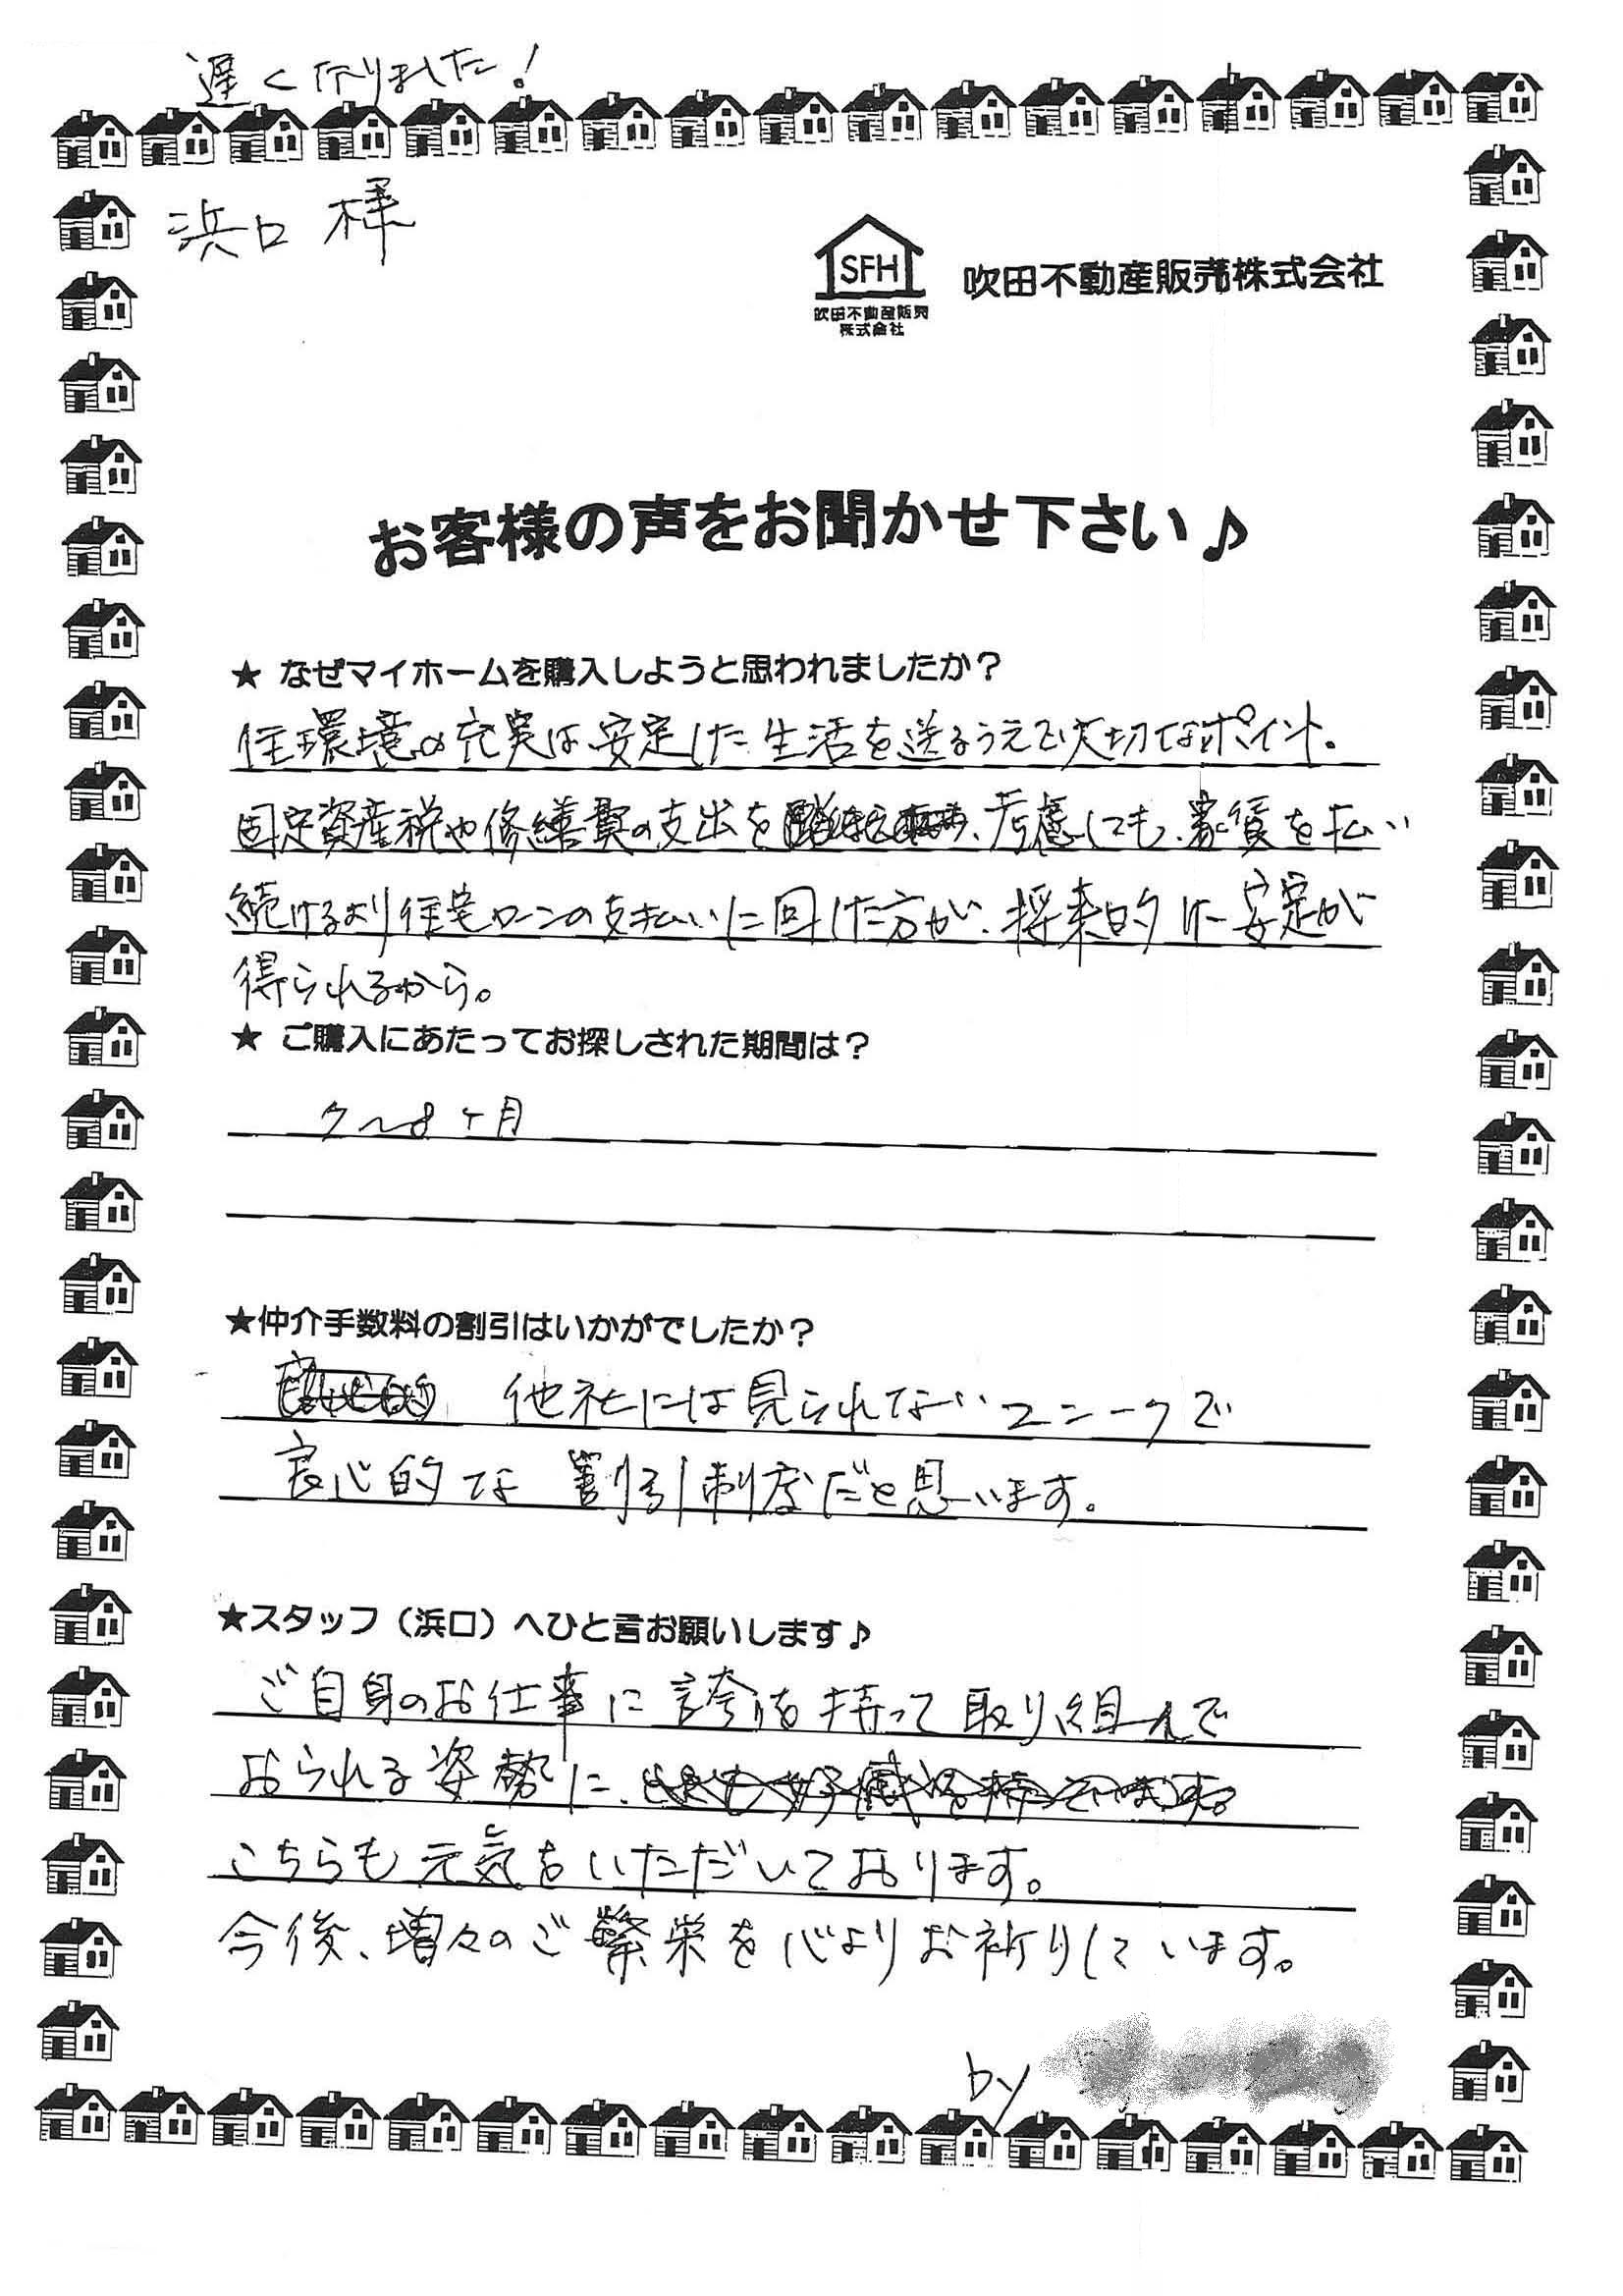 遅くなりました！
浜口 様
SFH
吹田不動産販売
株式会社
吹田不動産販売株式会社
お客様の声をお聞かせ下さい♪
★ なぜマイホームを購入しようと思われましたか？
住環境の充実は安定した生活を送るうえで大切なポイント。
固定資産税や修繕費の支出を 考慮しても、家賃を払い
続けるより住宅ローンの支払いに回した方が、将来的に安定が
得られるから。
★ ご購入にあたってお探しされた期間は？
7～8ヶ月
★仲介手数料の割引はいかがでしたか？
他社には見られないユニークで
良心的な 割引制度だと思います。
★スタッフ（浜口）へひと言お願いします♪
ご自身のお仕事に誇を持って取り組んで
おられる姿勢に、
こちらも元気をいただいております。
今後、増々のご繁栄を心よりお祈りしています。
by